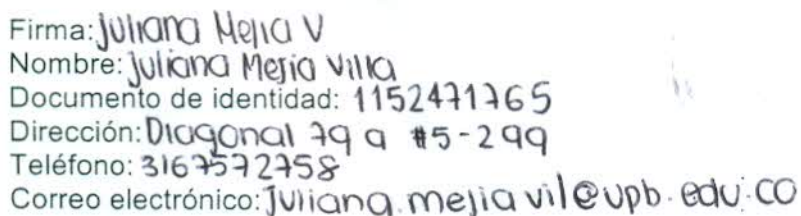 Firma: Juliana Mejia V
Nombre: Juliana Mejia Villa
Documento de identidad: 1152471765
Dirección: Diagonal 79 a #5-299
Teléfono: 3167572758
Correo electrónico: Juliana.mejiavil@upb.edu.co